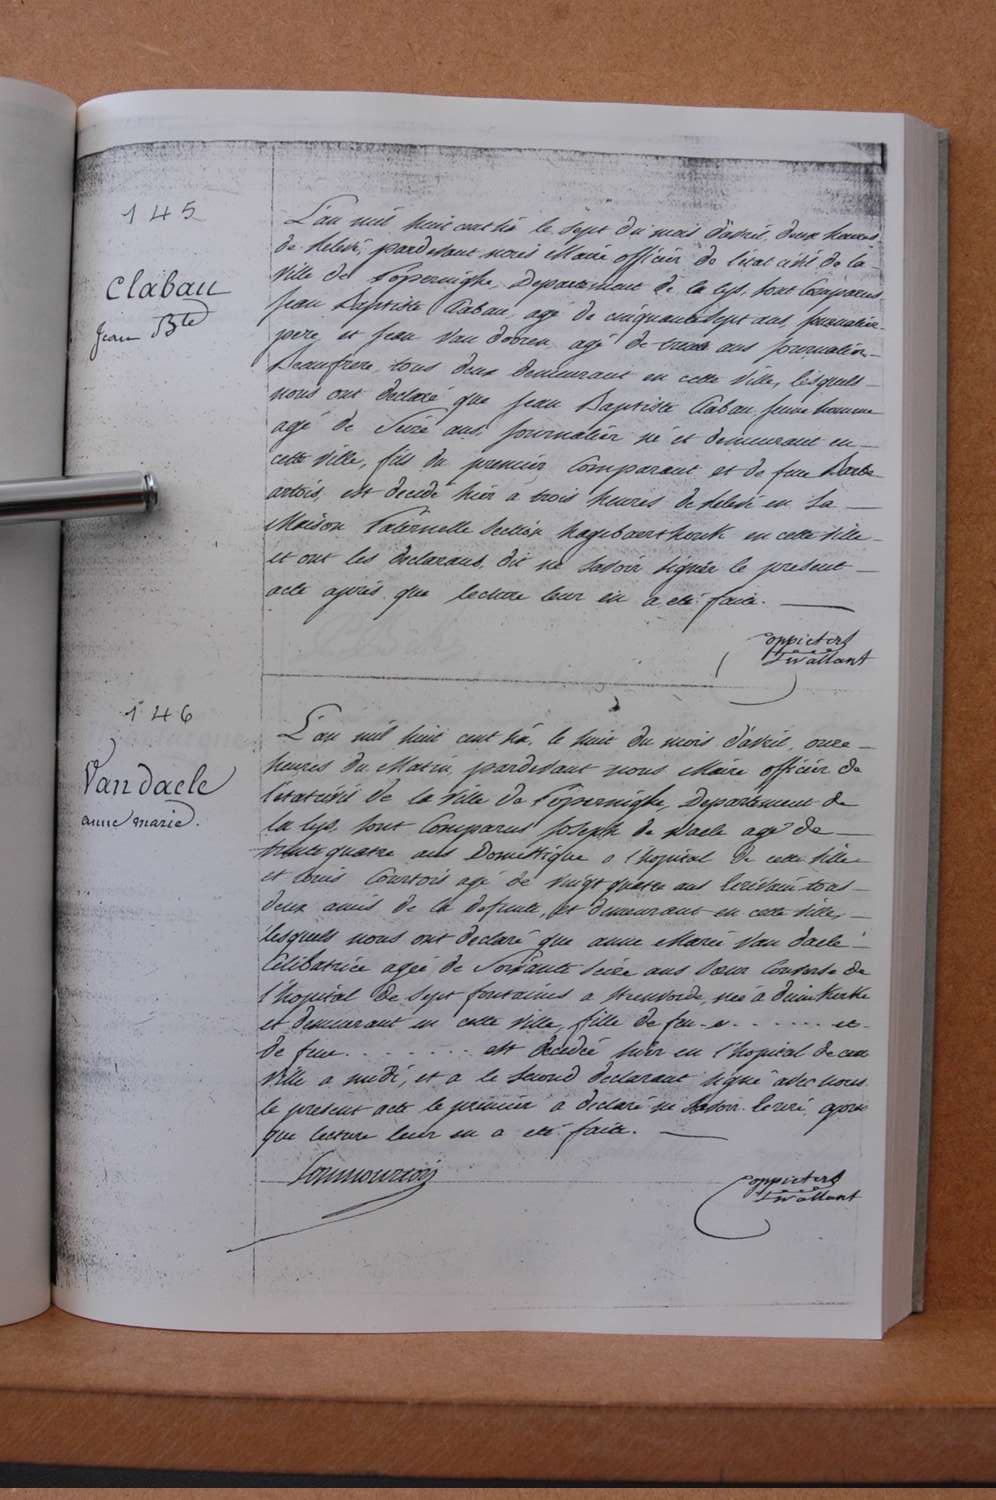 145
Clabau
Jean Bte
L'an mil huit cent dix le sept du mois d'avril, deux heures
de relevé, pardevant nous Maire officier de l'etat civil de la
Ville de Poperinghe, Departement de la Lys, sont Comparus
Jean Baptiste Clabau, agé de cinquante sept ans, journalier
pere, et Jean Van dooren agé de trente ans journalier
Beaufrere, tous deux demeurant en cette Ville, lesquels
nous ont declaré que Jean Baptiste Clabau jeune homme
agé de Seize ans, journalier né et demeurant en
cette ville, fils du premier Comparant et de feue Barbe
artois, est decedé hier a trois heures de relevé en sa
Maison Paternelle Section hagebaerthouk en cette ville
et ont les declarans, dit ne savoir signer le present
acte après que lecture leur en a eté faite.
Coppieters
Stevallant
146
Van daele
anne marie.
L'an mil huit cent dix, le huit du mois d'avril, onze
heures du Matin, pardevant nous Maire officier de
l'etat civil de la Ville de Poperinghe, Departement de
la Lys, sont Comparus Joseph de Naele agé de
trente quatre ans Domestique a l'hopital de cette ville
et Louis Courtois agé de vingt quatre ans Ecrivain tous
deux amis de la defunte, et demeurant en cette Ville,
lesquels nous ont declaré que anne Marie Van daele
Celibatrice ageé de Soixante Seize ans Soeur Converse de
l'hopital de sept fontaines a Steenvorde, neé a duinkerke
et demeurant en cette ville, fille de feu . . . . . . et
de feue . . . . . . . est decedeé hier en l'hopital de cette
ville a midi, et a le second declarant signé avec nous
le present acte le premier a declaré ne savoir Ecrire, après
que lecture leur en a eté faite.
Coppieters
Stevallant